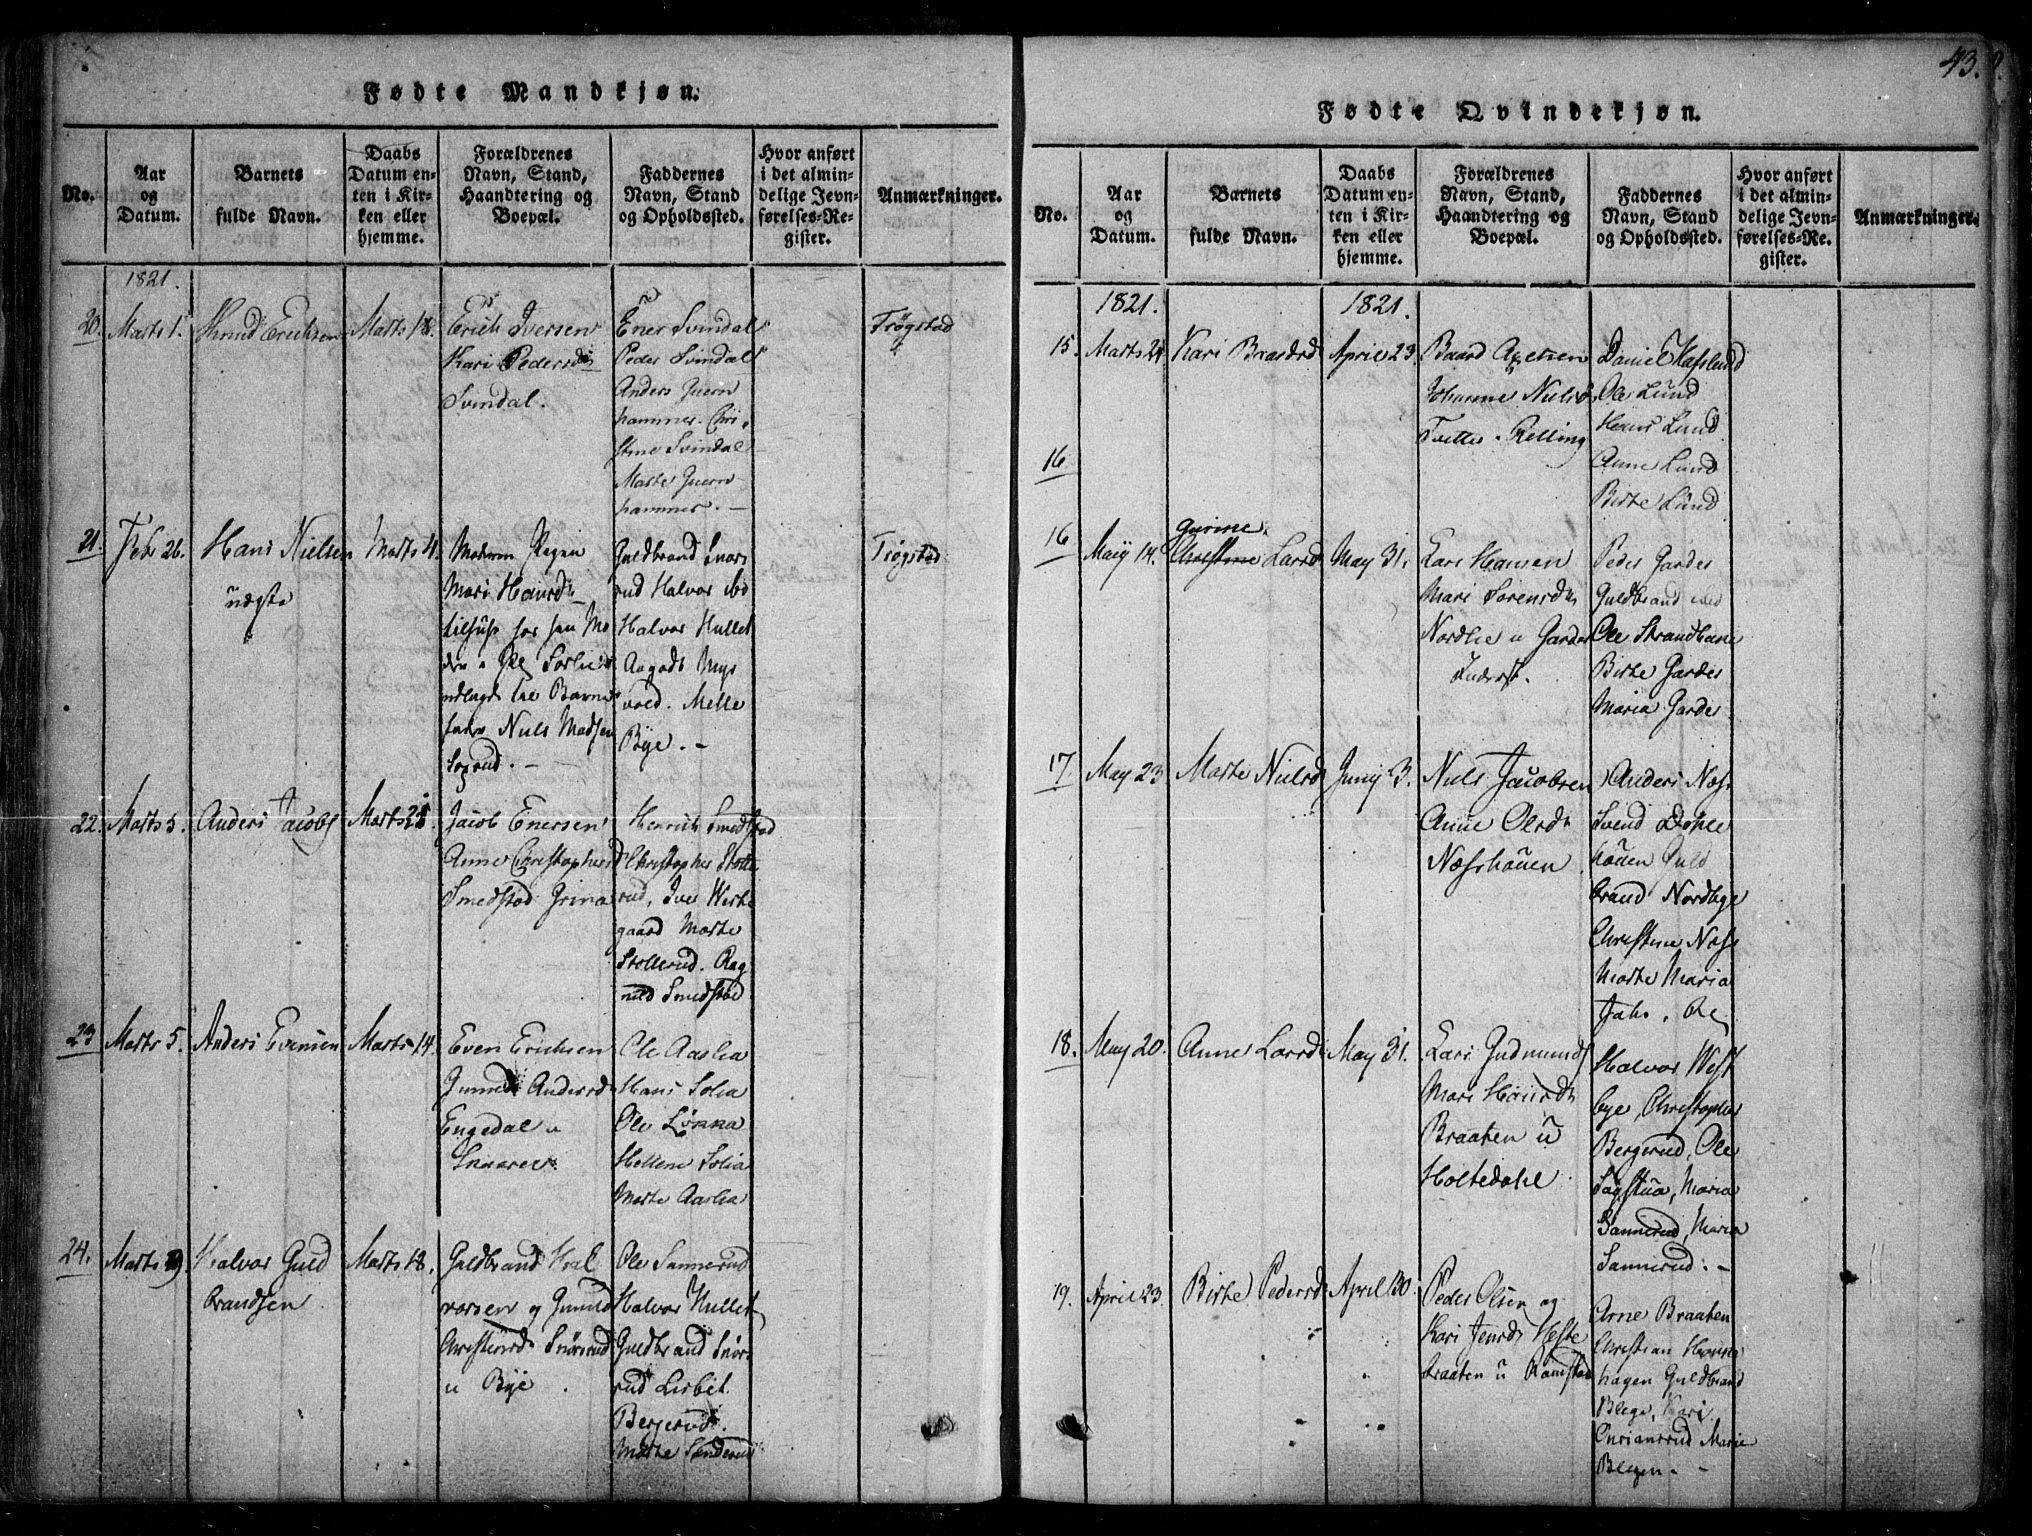 Fødte Mandkjøn.
No.
Aar
og
Datum.
Barnets
fulde Navn.
Daabs
Datum en-
ten i Kir-
ken eller
hjemme.
Forældrenes
Navn, Stand,
Haandtering og
Boepæl.
Faddernes
Navn, Stand
og Opholdssted.
Hvor anført
i det almin-
delige Jevn-
førelses-Re-
gister.
Anmærkninger.
1821.
20.
Marts 1.
Knud Erichsen
Marts 18.
Erich Iversen
Kari Pedersd
Svindal.
Ener Svindal
Peder Svindal
Anders
hammer. Chri
stine Svindal
Marte
hammer. –
Trøgstad
21.
Febr 26.
Hans Nielsen
uægte
Marts 4.
Moderen Pigen
Mari Hansd
Barne
fader Niels Madsen
Guldbrand Snors
rud Halvor ibd
Halvor Hullet
vold. Melle
Bye. –
Trøgstad
22.
Marts 5.
Anders Jacobs
Marts 25
Jacob Enersen
Anne Christophersd
Smedstad Grina
Henrich Smedstad
Christopher Stolle
rud, Iver Weste
gaard Marte
Stollerud. Rag
nild Smedstad
23
Marts 5.
Anders Evensen
Marts 14.
Even Erichsen
Gunnild Andersd
Engedal u
Ole Aaslia
Hans Solia
Ole
Hellene Solia
Marte Aaslia
24.
Marts 9.
Halvor Guld
brandsen
Marts 18.
Guldbrand Hal
vorsen og Gunild
Christensd Snorsrud
u Bye.
Ole Sannerud
Halvor Hullet
Guldbrand Snors
rud Lisbet
Bergerud.
Marte Sanderud
43.
Fødte Qvindekjøn.
No.
Aar
og
Datum.
Barnets
fulde Navn.
Daabs
Datum en-
ten i Kir-
ken eller
hjemme.
Forældrenes
Navn, Stand,
Haandtering og
Boepæl.
Faddernes
Navn, Stand
og Opholdssted.
Hvor anført
i det almin-
delige Jevn-
førelses-Re-
gister.
Anmærkninger.
1821.
1821.
15.
Marts 24
Kari Baardsd
April 23.
Baard Axelsen
Johanne Nielsd
Tvetter. Relling
Daniel Haslund
Ole Lund
Hans Lund
Anne Lund
Birte Lund
16
16
Maij 14.
Gurine
Christine Larsd
May 31.
Lars Hansen
Mari Sørensd
Nordlie u Garder
Inderst.
Peder Garder
Guldbrand ibid
Ole Strandbane
Birte Garder
Maria Garder
17.
May 23
Marte Nielsd
Junij 3.
Niels Jacobsen
Anne Olesd
Næshouen
Anders Næs
Svend Dahle
houen Guld
brand Nordbye
Christine Næs
Marte Maria
18.
May 20.
Anne Larsd
May 31.
Lars Gudmunds
Mari Hansd
Braaten u
Holtedahl
Halvor West
bye, Christopher
Bergerud, Ole
Sagstua, Maria
Sannerud, Maria
Sannerud. –
19.
April 23.
Birte Pedersd
April 30.
Peder Olsen og
Kari Jensd Heste
braaten u Ramstad
Arne Braaten
Christian
hagen Guldbrand
Blege, Kari
Marie
Blegen. –